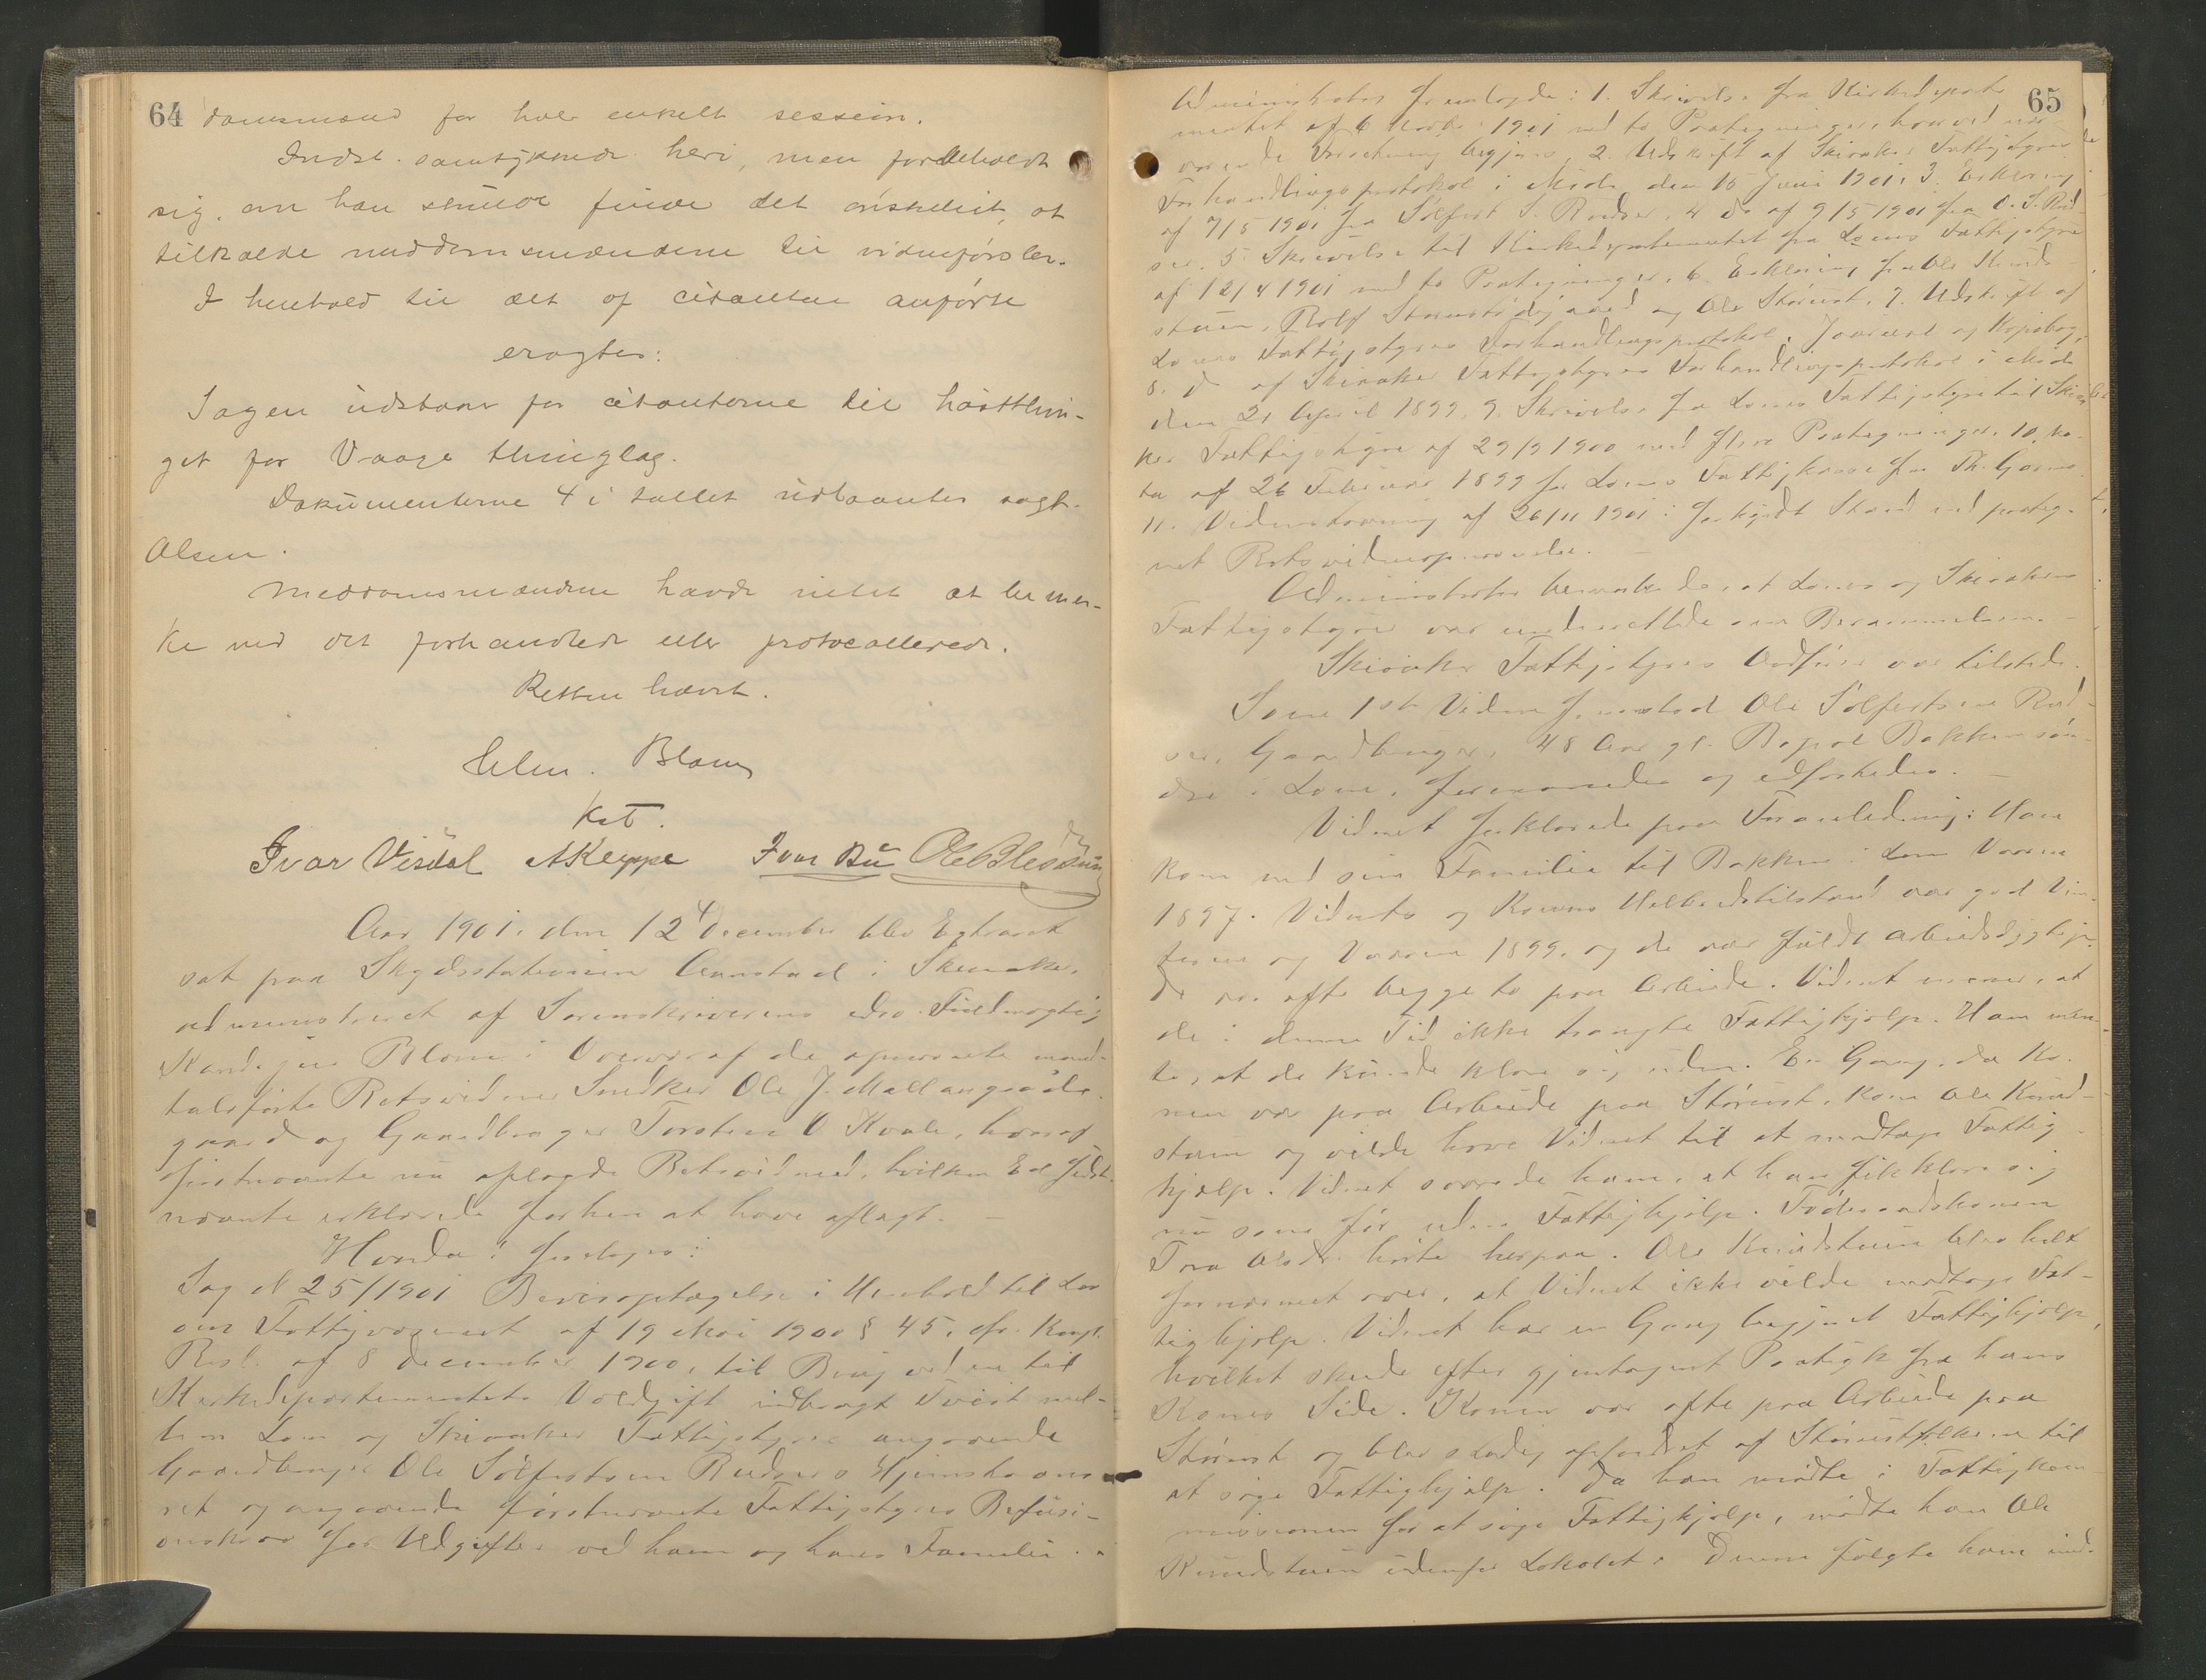 64
domsmænd for hver enkelt session.
Indst. samtykkede heri, men forbeholdt
sig, om han skulde finde det ønskeligt, at
tilkalde meddomsmændene til vidneførsler.
I henhold til det af citanten anførte
eragtes:
Sagen udstaar for citanterne til høstthin-
get for Vaage thinglag.
Dokumenterne 4 i tallet udlaantes sagf.
Olsen.
Meddomsmændene havde intet at bemær-
ke ved det forhandlede eller protocollerede.
Retten hævet.
Blom
Kst.
Ivar Visdal AKleppe Ivar Bu Ole Blessum
Aar 1901, den 12 December blev Extraret
sat paa Skydsstationen Aanstad i Skiaker,
administreret af Sorenskriverens edsv. Fuldmægtig
Kand. jur. Blom i Overvær af de opnævnte mænd-
talsførte Retsvidner Snedker Ole J. Mallangsødé-
gaard og Gaardbruger Torstein O Kvale, hvoraf
førstnævnte nu aflagde Retsvidneed, hvilken Ed sidst-
nævnte erklærede forhen at have aflagt. —
Hvorda i foretoges:
Sag N 25/1901 Bevisoptagelse i Henhold til Lov
om Fattigvæsenet af 19 Mai 1900 § 45, cfr. Kongl.
Resl. af 8 December 1900, til Brug ved en til
Kirkedepartementets Voldgift indbragt Tvist mel-
lem Lom og Skiaker Fattigstyre angaaende
Gaardbruger Ole Sølfestsen Rudsers Hjemstavns-
ret og angaaende førstnævnte Fattigstyres Refusi-
onskrav for Udgifter ved ham og hans Familie. —
65
Administrator fremlagde: 1. Skrivelse fra Kirkedeparte-
mentet af 6 Novbr. 1901 med to Paategninger, hvorved nær-
værende Forretning begjæres, 2. Udskrift af Skiaker Fattigstyres
Forhandlingsprotokol i Møde den 15 Juni 1901, 3. Erklæring
af 7/5 1901 fra Sølfest S. Rudser, 4 do af 9/5 1901 fra O. S. Rud-
ser, 5. Skrivelse til Kirkedepartementet fra Loms Fattigstyre
af 12/4 1901 med to Paategninger, 6. Erklæring fra Ole Knud-
stuen, Rolf Storustødegaard og Ole Storust, 7. Udskrift af
Loms Fattigstyres Forhandlingsprotokol, Journal og Kopibog,
8. do af Skiaker Fattigstyres Forhandlingsprotokol i Møde
den 21 April 1899, 9. Skrivelse fra Loms Fattigstyre til Skia-
ker Fattigstyre af 29/9 1900 med flere Paategninger, 10. No-
ta af 26 Februar 1899 for Loms Fattigkasse fra Th. Garmo
11. Vidnestævning af 26/11 1901 i forkyndt Stand med paateg-
net Retsvidneopnævnelse. —
Administrator bemærkede, at Loms og Skiakers
Fattigstyrer var underrettede om Berammelsen. —
Skiaker Fattigstyres Ordfører var tilstede.
Som 1ste Vidne fremstod Ole Sølfestsen Rud-
ser, Gaardbruger, 48 Aar gl. Bopæl Bakken søn-
dre i Lom, formanedes og edfæstedes. —
Vidnet forklarede paa Foranledning: Han
kom med sin Familie til Bakken i Lom Vaaren
1897. Vidnets og Konens Helbredstilstand var god Vin-
teren og Vaaren 1899, og de var fuldt arbeidsdygtige.
De var ofte begge to paa Arbeide. Vidnet mener, at
de i denne Tid ikke trængte Fattighjælp. Han mén-
te, at de kunde klare sig uden. En Gang, da Ko-
nen var paa Arbeide paa Storust, kom Ole Knud-
stuen og vilde have Vidnet til at modtage Fattig-
hjælp. Vidnet svarede ham, at han fik klare sig
nu som før uden Fattighjælp. Føderaadskonen
Tora Alsdr. hørte herpaa. Ole Knudstuen blev helt
fornærmet over, at Vidnet ikke vilde modtage Fat-
tighjælp. Vidnet har en Gang begjæret Fattighjælp,
hvilket skede efter gjentagent Paatryk fra hans
Kones Side. Konen var ofte paa Arbeide paa
Storust og blev stadig opfordret af Storustfolkene til
at søge Fattighjælp. Da han mødte i Fattigkom-
missionen for at søge Fattighjælp, mødte han Ole
Knudstuen udenfor Lokalet. Denne fulgte ham ind-